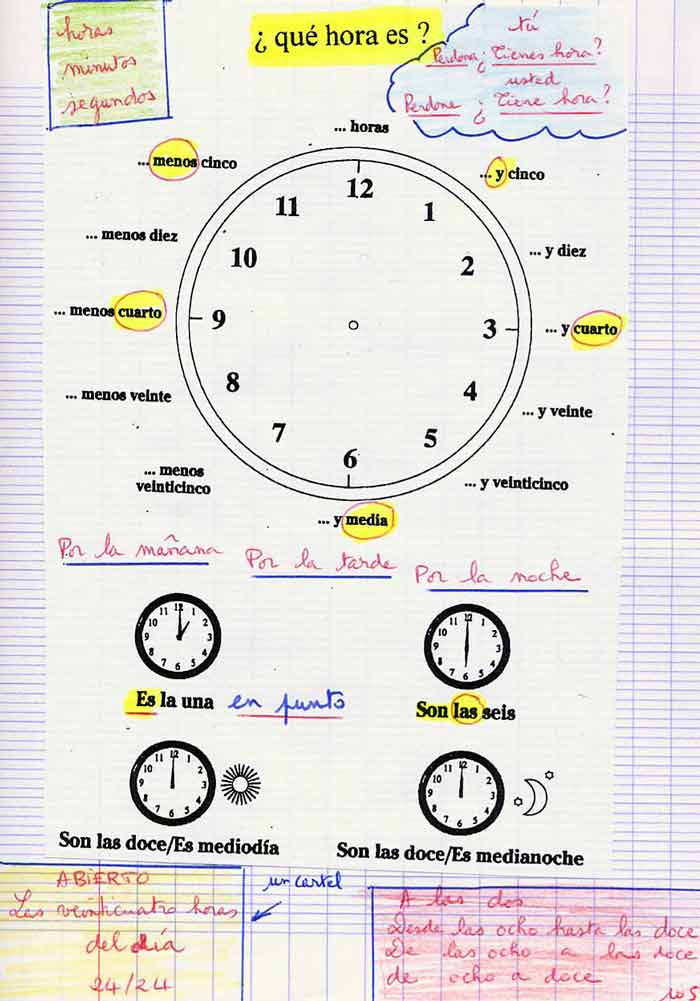 horas
minutos
segundos
¿ qué hora es ?
tú
Perdona ¿ Tienes hora?
usted
Perdone ¿ Tiene hora?
... horas
... menos cinco
... y cinco
... menos diez
... y diez
... menos cuarto
... y cuarto
... menos veinte
... y veinte
... menos
veinticinco
... y veinticinco
... y media
12
1
2
3
4
5
6
7
8
9
10
11
Por la mañana
Por la tarde
Por la noche
12
1
2
3
4
5
6
7
8
9
10
11
Es la una en punto
12
1
2
3
4
5
6
7
8
9
10
11
Son las seis
12
1
2
3
4
5
6
7
8
9
10
11
Son las doce/Es mediodía
12
1
2
3
4
5
6
7
8
9
10
11
Son las doce/Es medianoche
ABIERTO
Las veinticuatro horas
del día
24/24
un cartel
A las dos
Desde las ocho hasta las doce
De las ocho a las doce
de ocho a doce